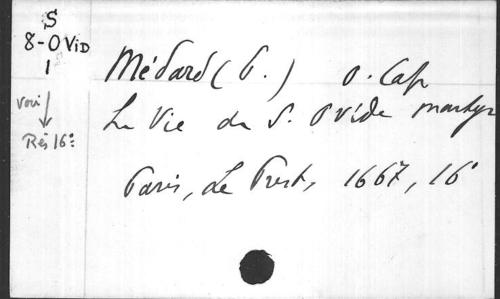 S
8-OViD
1
voir
Rés 16º
Médard (P.) O. Cap
La Vie de S. Ovide martyr
Paris, Le Prest, 1667, 16º